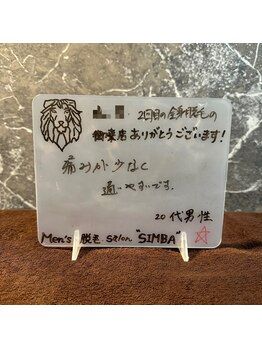 2回目の全身脱毛の
御来店ありがとうございます！
痛みが少なく
通いやすいです。
20代男性
Men's脱毛 salon "SIMBA"